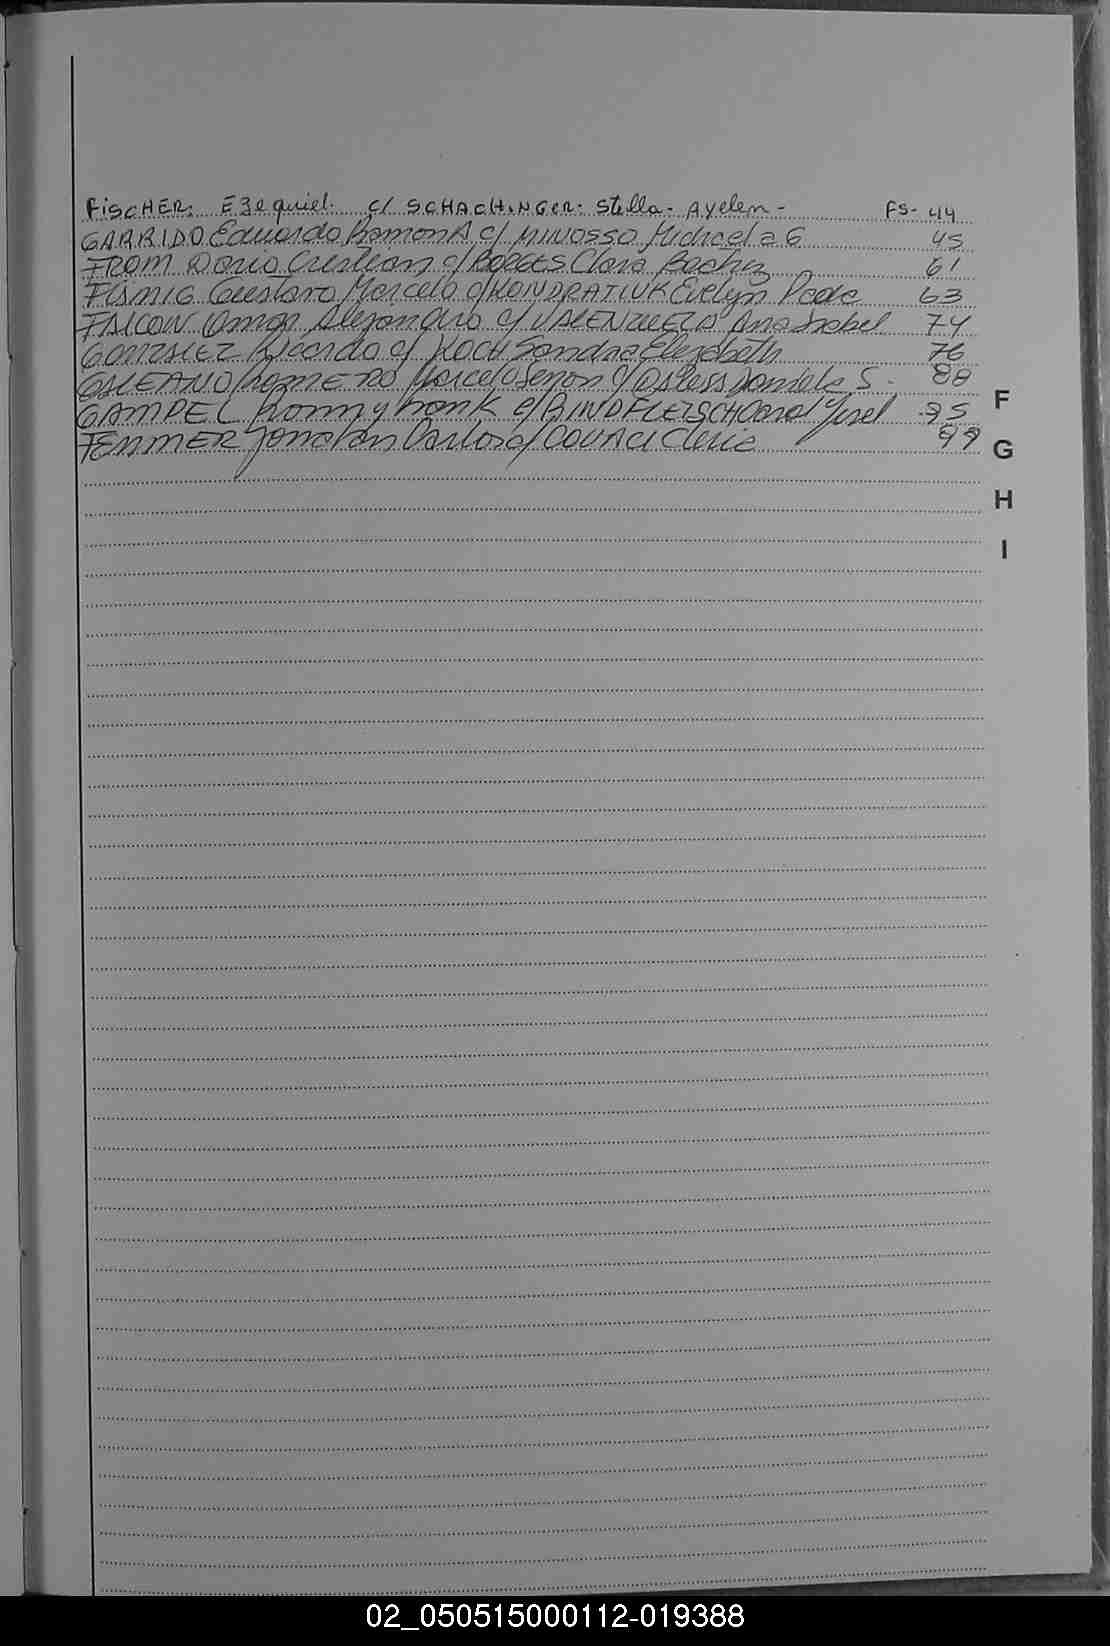 FiSCHER. Ezequiel. c/ SCHACHiNGER. Stella. Ayelen - FS- 44
GARRIDO Eduardo Ramon A c/ MINOSSO Michaela G 45
FROM Dario Cristian c/ BORGES Clara Beatriz 61
Gustavo Marcelo c/ KONDRATIUK Evelyn Paola 63
FALCON Omar Alejandro c/ VALENZUELA Ana Isabel 74
GONZALEZ Ricardo c/ KOCH Sandra Elizabeth 76
GALEANO ROMERO Marcelo c/ Daniela S. 88
GAMPEL Ronny Frank c/ RINDFLEISCH Carol Yisel 95
FEMMER Jonatan Carlos c/ COVACI Clelia 99
F
G
H
I
02_050515000112-019388